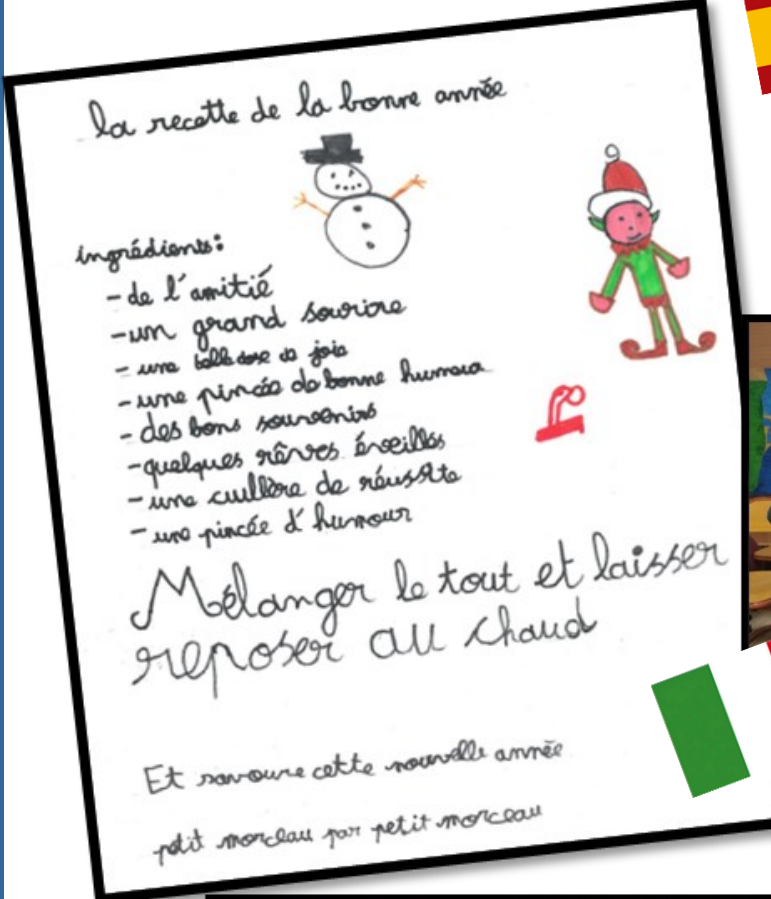 la recette de la bonne année
ingrédients:
- de l'amitié
- un grand sourire
- une belle dose de joie
- une pincée de bonne humeur
- des bons souvenirs
- quelques rêves éveillés
- une cuillère de réussite
- une pincée d'humour
Mélanger le tout et laisser
reposer au chaud
Et savoure cette nouvelle année
petit morceau par petit morceau